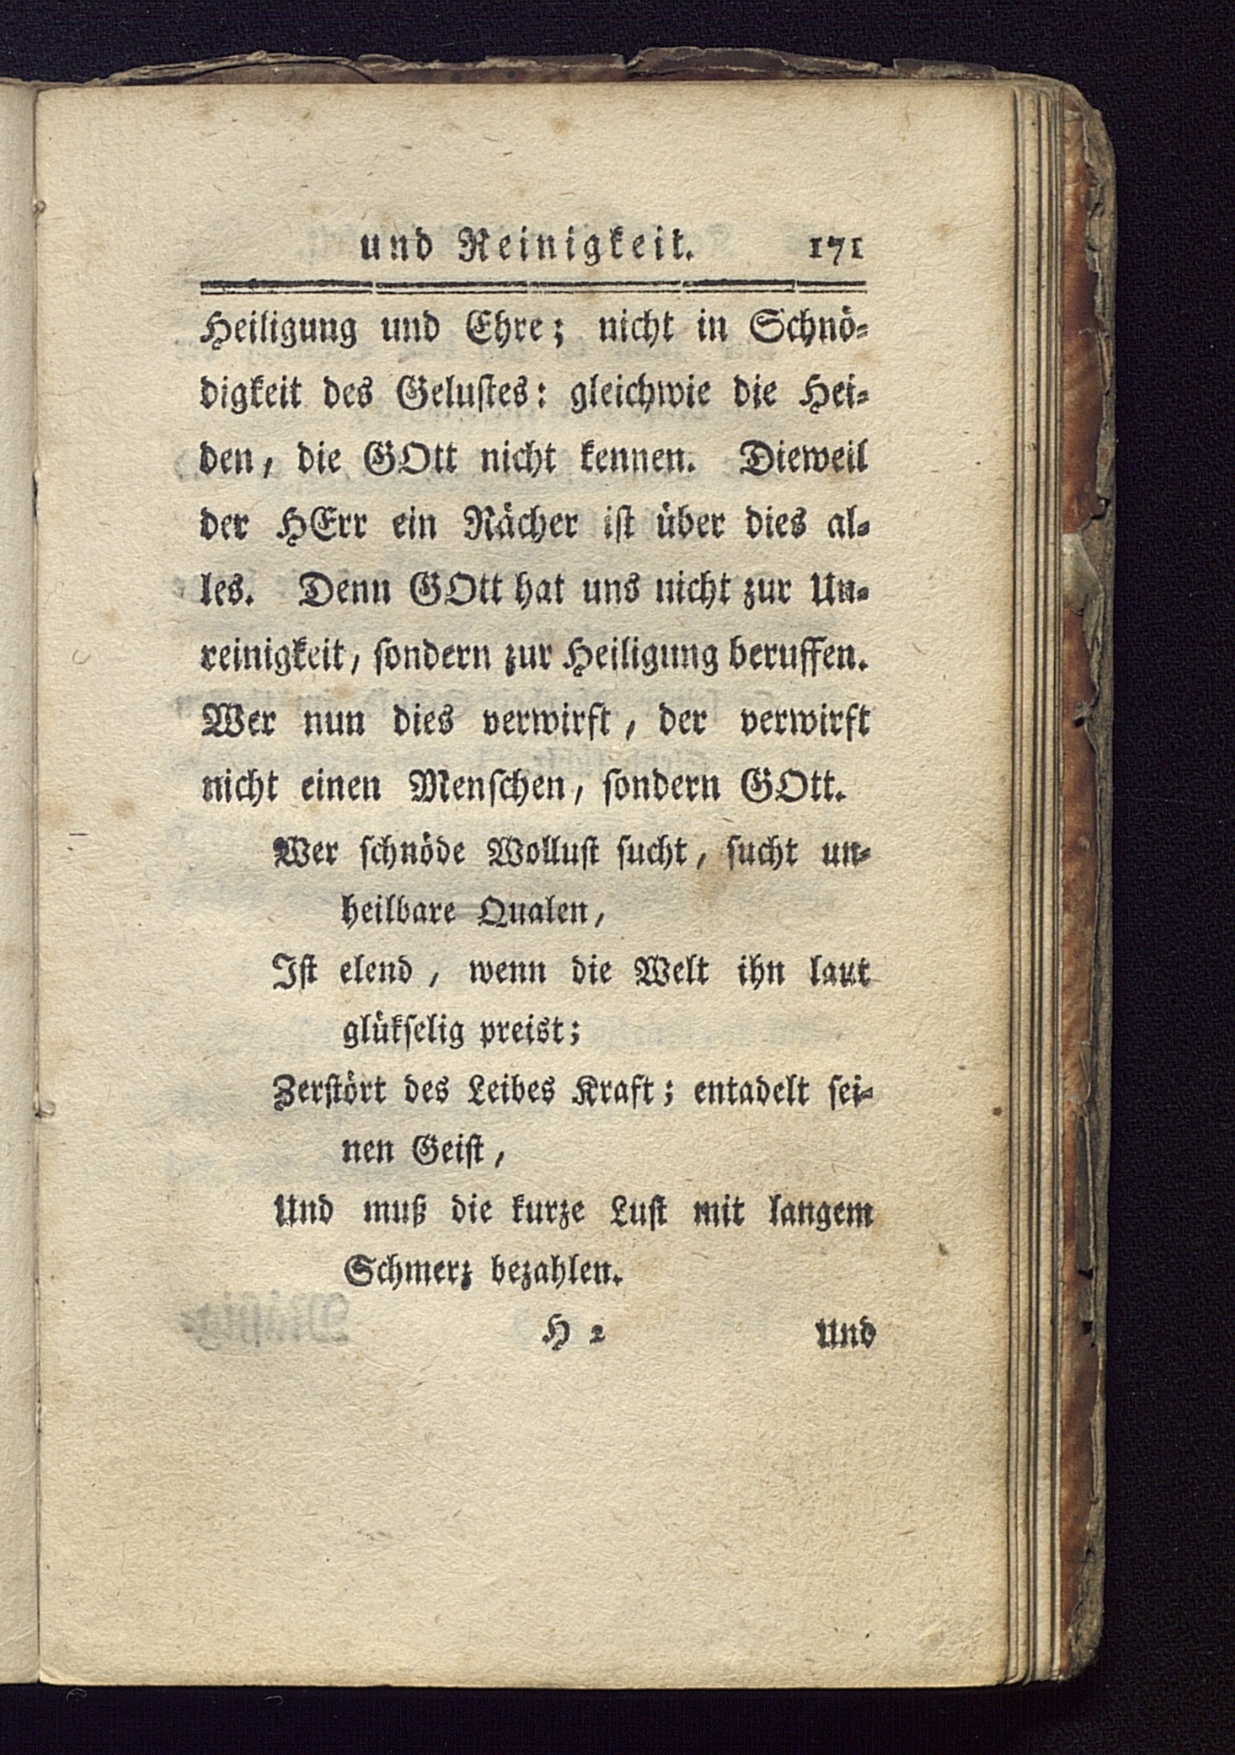 und Reinigkeit. 171
Heiligung und Ehre; nicht in Schnö-
digkeit des Gelustes: gleichwie die Hei-
den, die GOtt nicht kennen. Dieweil
der HErr ein Rächer ist über dies al-
les. Denn GOtt hat uns nicht zur Un-
reinigkeit, sondern zur Heiligung beruffen.
Wer nun dies verwirft, der verwirft
nicht einen Menschen, sondern GOtt.
Wer schnöde Wollust sucht, sucht un-
heilbare Qualen,
Ist elend, wenn die Welt ihn laut
glükselig preist;
Zerstört des Leibes Kraft; entadelt sei-
nen Geist,
Und muß die kurze Lust mit langem
Schmerz bezahlen.
H 2 Und